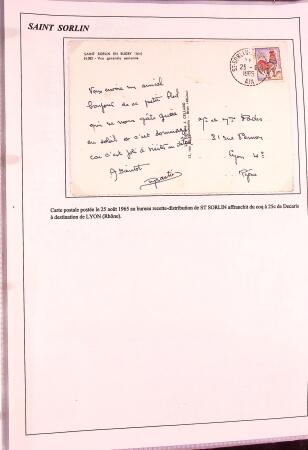 SAINT SORLIN
SAINT SORLIN EN BUGEY (Ain)
Vue générale aérienne
ST SORLIN
25 - 8
1965
AIN
Vous envoie un amical
bonjour de ce petit bled
qui ne nous gâte guère
au soleil et c'est dommage
car c'est joli
A Bientôt
Mr et Mme
31 rue
Lyon 4e
Rhône
Carte postale postée le 25 août 1965 au bureau recette-distribution de ST SORLIN affranchit du coq à 25c de Decaris
à destination de LYON (Rhône).